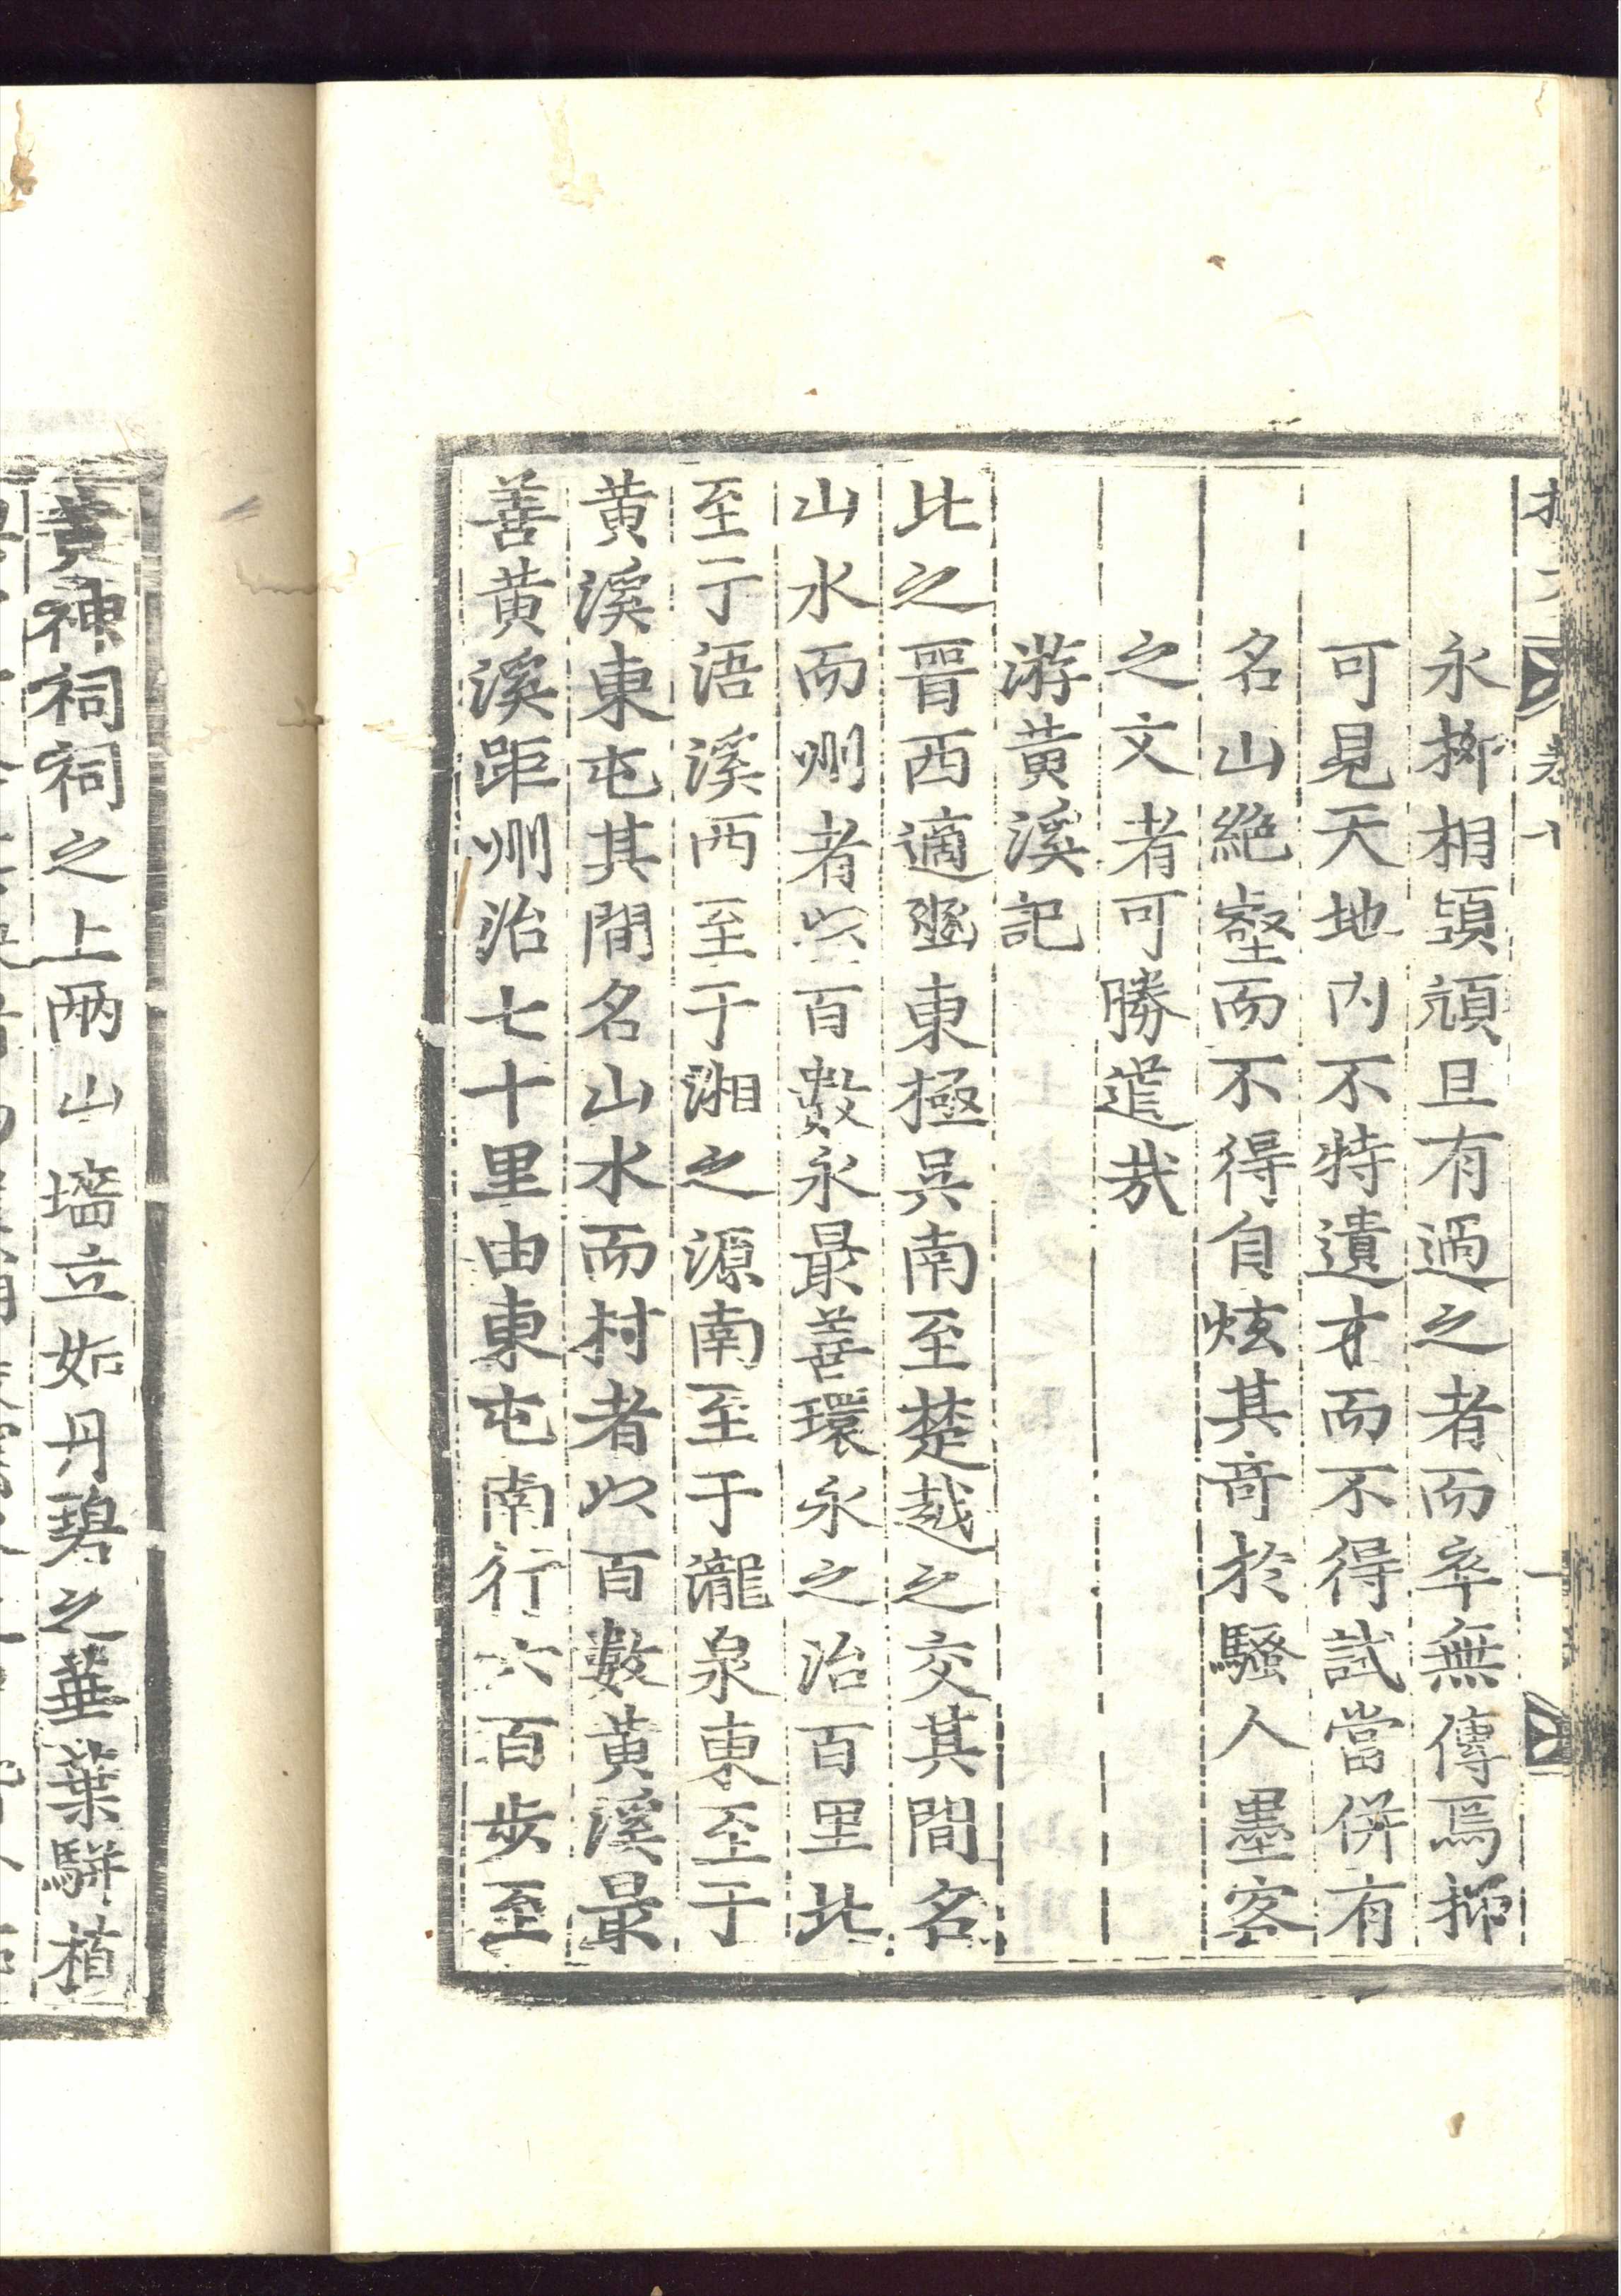 永柳相頡頏且有過之者而率無傳焉抑
可見天地内不特遺才而不得試當併有
名山絶壑而不得自炫其奇於騷人墨客
之文者可勝道哉
游黃溪記
北之晉西適豳東極吳南至楚越之交其間名
山水而州者以百數永最善環永之治百里北
至于浯溪西至于湘之源南至于瀧泉東至于
黄溪東屯其間名山水而村者以百數黄溪最
善黄溪距州治七十里由東屯南行六百步至
黄神祠祠之上兩山墻立如丹碧之華葉駢植